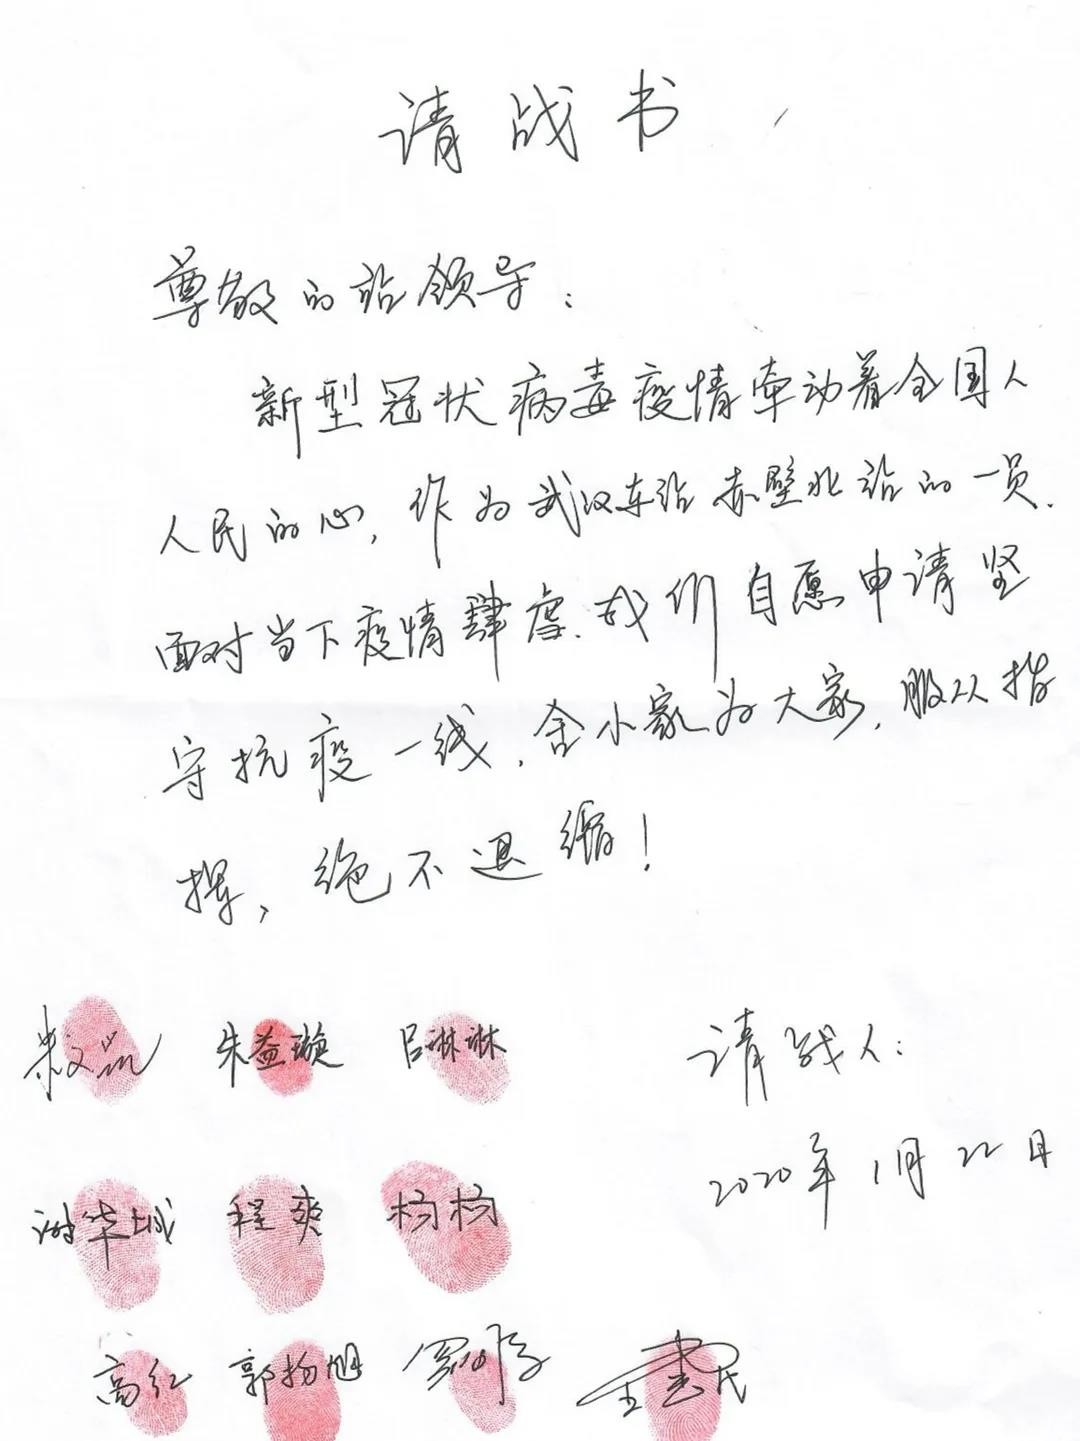 请战书
尊敬的站领导：
新型冠状病毒疫情牵动着全国人
人民的心，作为武汉东站赤壁北站的一员，
面对当下疫情肆虐，我们自愿申请坚
守抗疫一线，舍小家为大家，服从指
挥，绝不退缩！
朱益璇 吕琳琳
请战人：
2020年1月22日
谢华城 程爽 杨杨
高红 郭扬旭